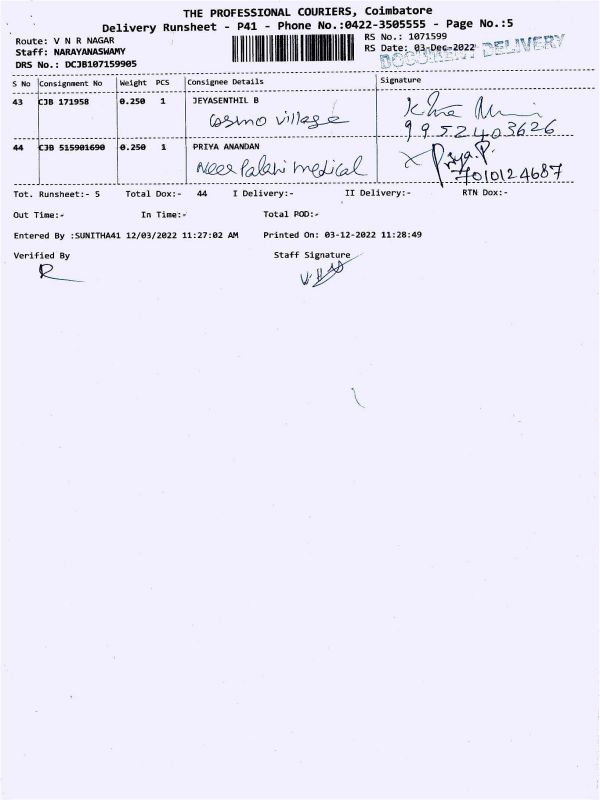 THE PROFESSIONAL COURIERS, Coimbatore
Delivery Runsheet - P41 - Phone No.:0422-3505555 - Page No.:5
Route: V N R NAGAR
RS No.: 1071599
Staff: NARAYANASWAMY
RS Date: 03-Dec-2022
DOCUMENT DELIVERY
DRS No.: DCJB107159905
S No Consignment No Weight PCS Consignee Details Signature
43 CJB 171958 0.250 1 JEYASENTHIL B
cosmo village
9952403626
44 CJB 515901690 0.250 1 PRIYA ANANDAN
Neer Palani medical
Priya.P.
7010124687
Tot. Runsheet:- 5 Total Dox:- 44 I Delivery:- II Delivery:- RTN Dox:-
Out Time:- In Time:- Total POD:-
Entered By :SUNITHA41 12/03/2022 11:27:02 AM Printed On: 03-12-2022 11:28:49
Verified By Staff Signature